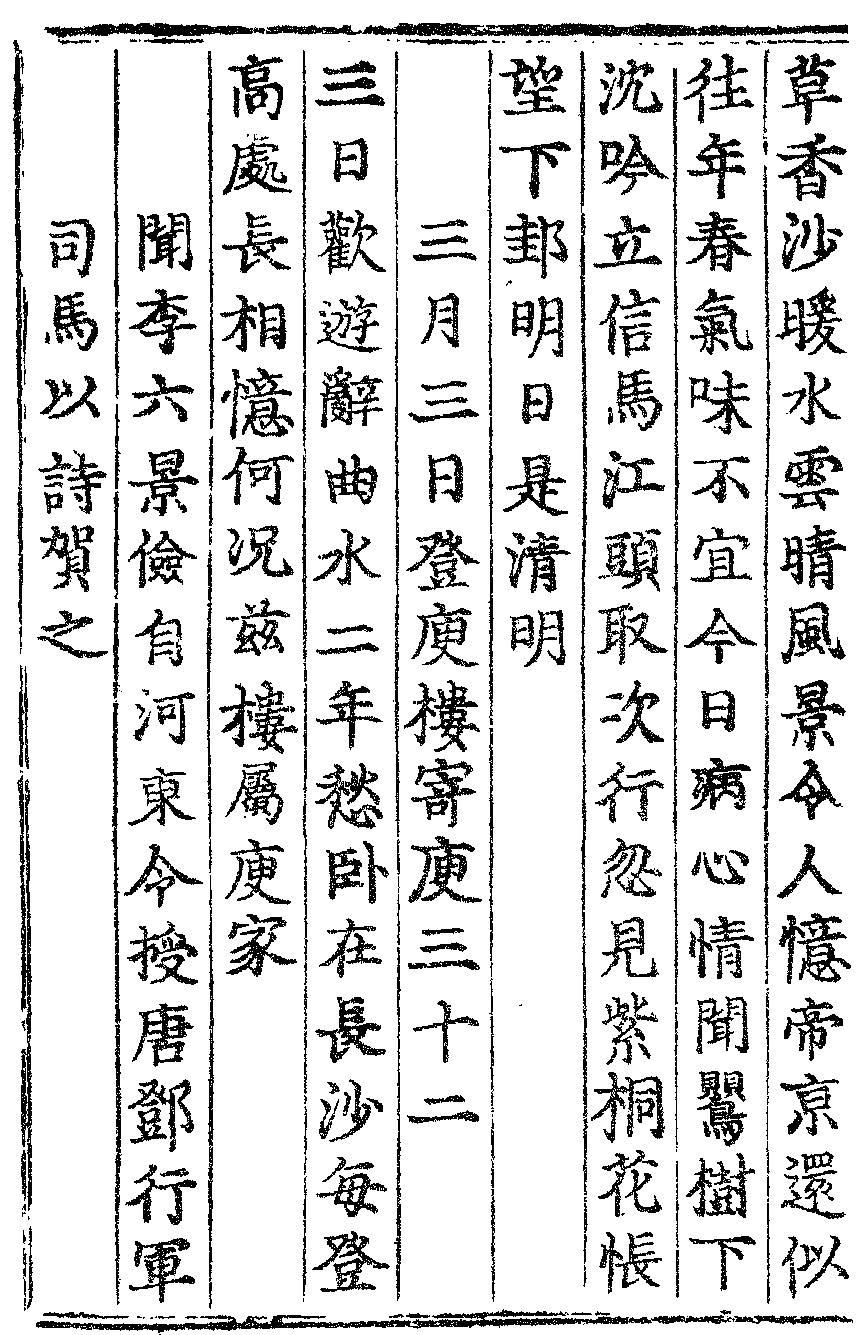 草香沙暖水雲晴風景令人憶帝京還似
往年春氣味不宜今日病心情聞鸎樹下
沈吟立信馬江頭取次行忽見紫桐花悵
望下邽明日是清明
三月三日登庾樓寄庾三十二
三日歡遊辭曲水二年愁卧在長沙每登
高處長相憶何况兹樓屬庾家
聞李六景儉自河東令授唐鄧行軍
司馬以詩賀之